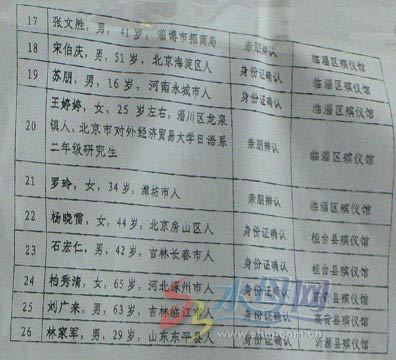 17 张文胜，男，41岁，淄博市招商局 亲朋辨认 临淄区殡仪馆
18 宋伯庆，男，51岁，北京海淀区人 身份证确认 临淄区殡仪馆
19 苏朋，男，16岁，河南永城市人 身份证确认 临淄区殡仪馆
20 王婷婷，女，25岁左右，淄川区龙泉
镇人，北京市对外经济贸易大学日语系
二年级研究生 亲朋辨认 临淄区殡仪馆
21 罗玲，女，34岁，潍坊市人 亲朋辨认 临淄区殡仪馆
22 杨晓雷，女，44岁，北京房山区人 身份证确认 桓台县殡仪馆
23 石宏仁，男，42岁，吉林长春市人 身份证确认 桓台县殡仪馆
24 柏秀清，女，65岁，河北涿州市人 身份证确认 高青县殡仪馆
25 刘广来，男，63岁，吉林临江市人 身份证确认 高青县殡仪馆
26 林家军，男，29岁，山东东平县人 身份证确认 沂源县殡仪馆
水母网